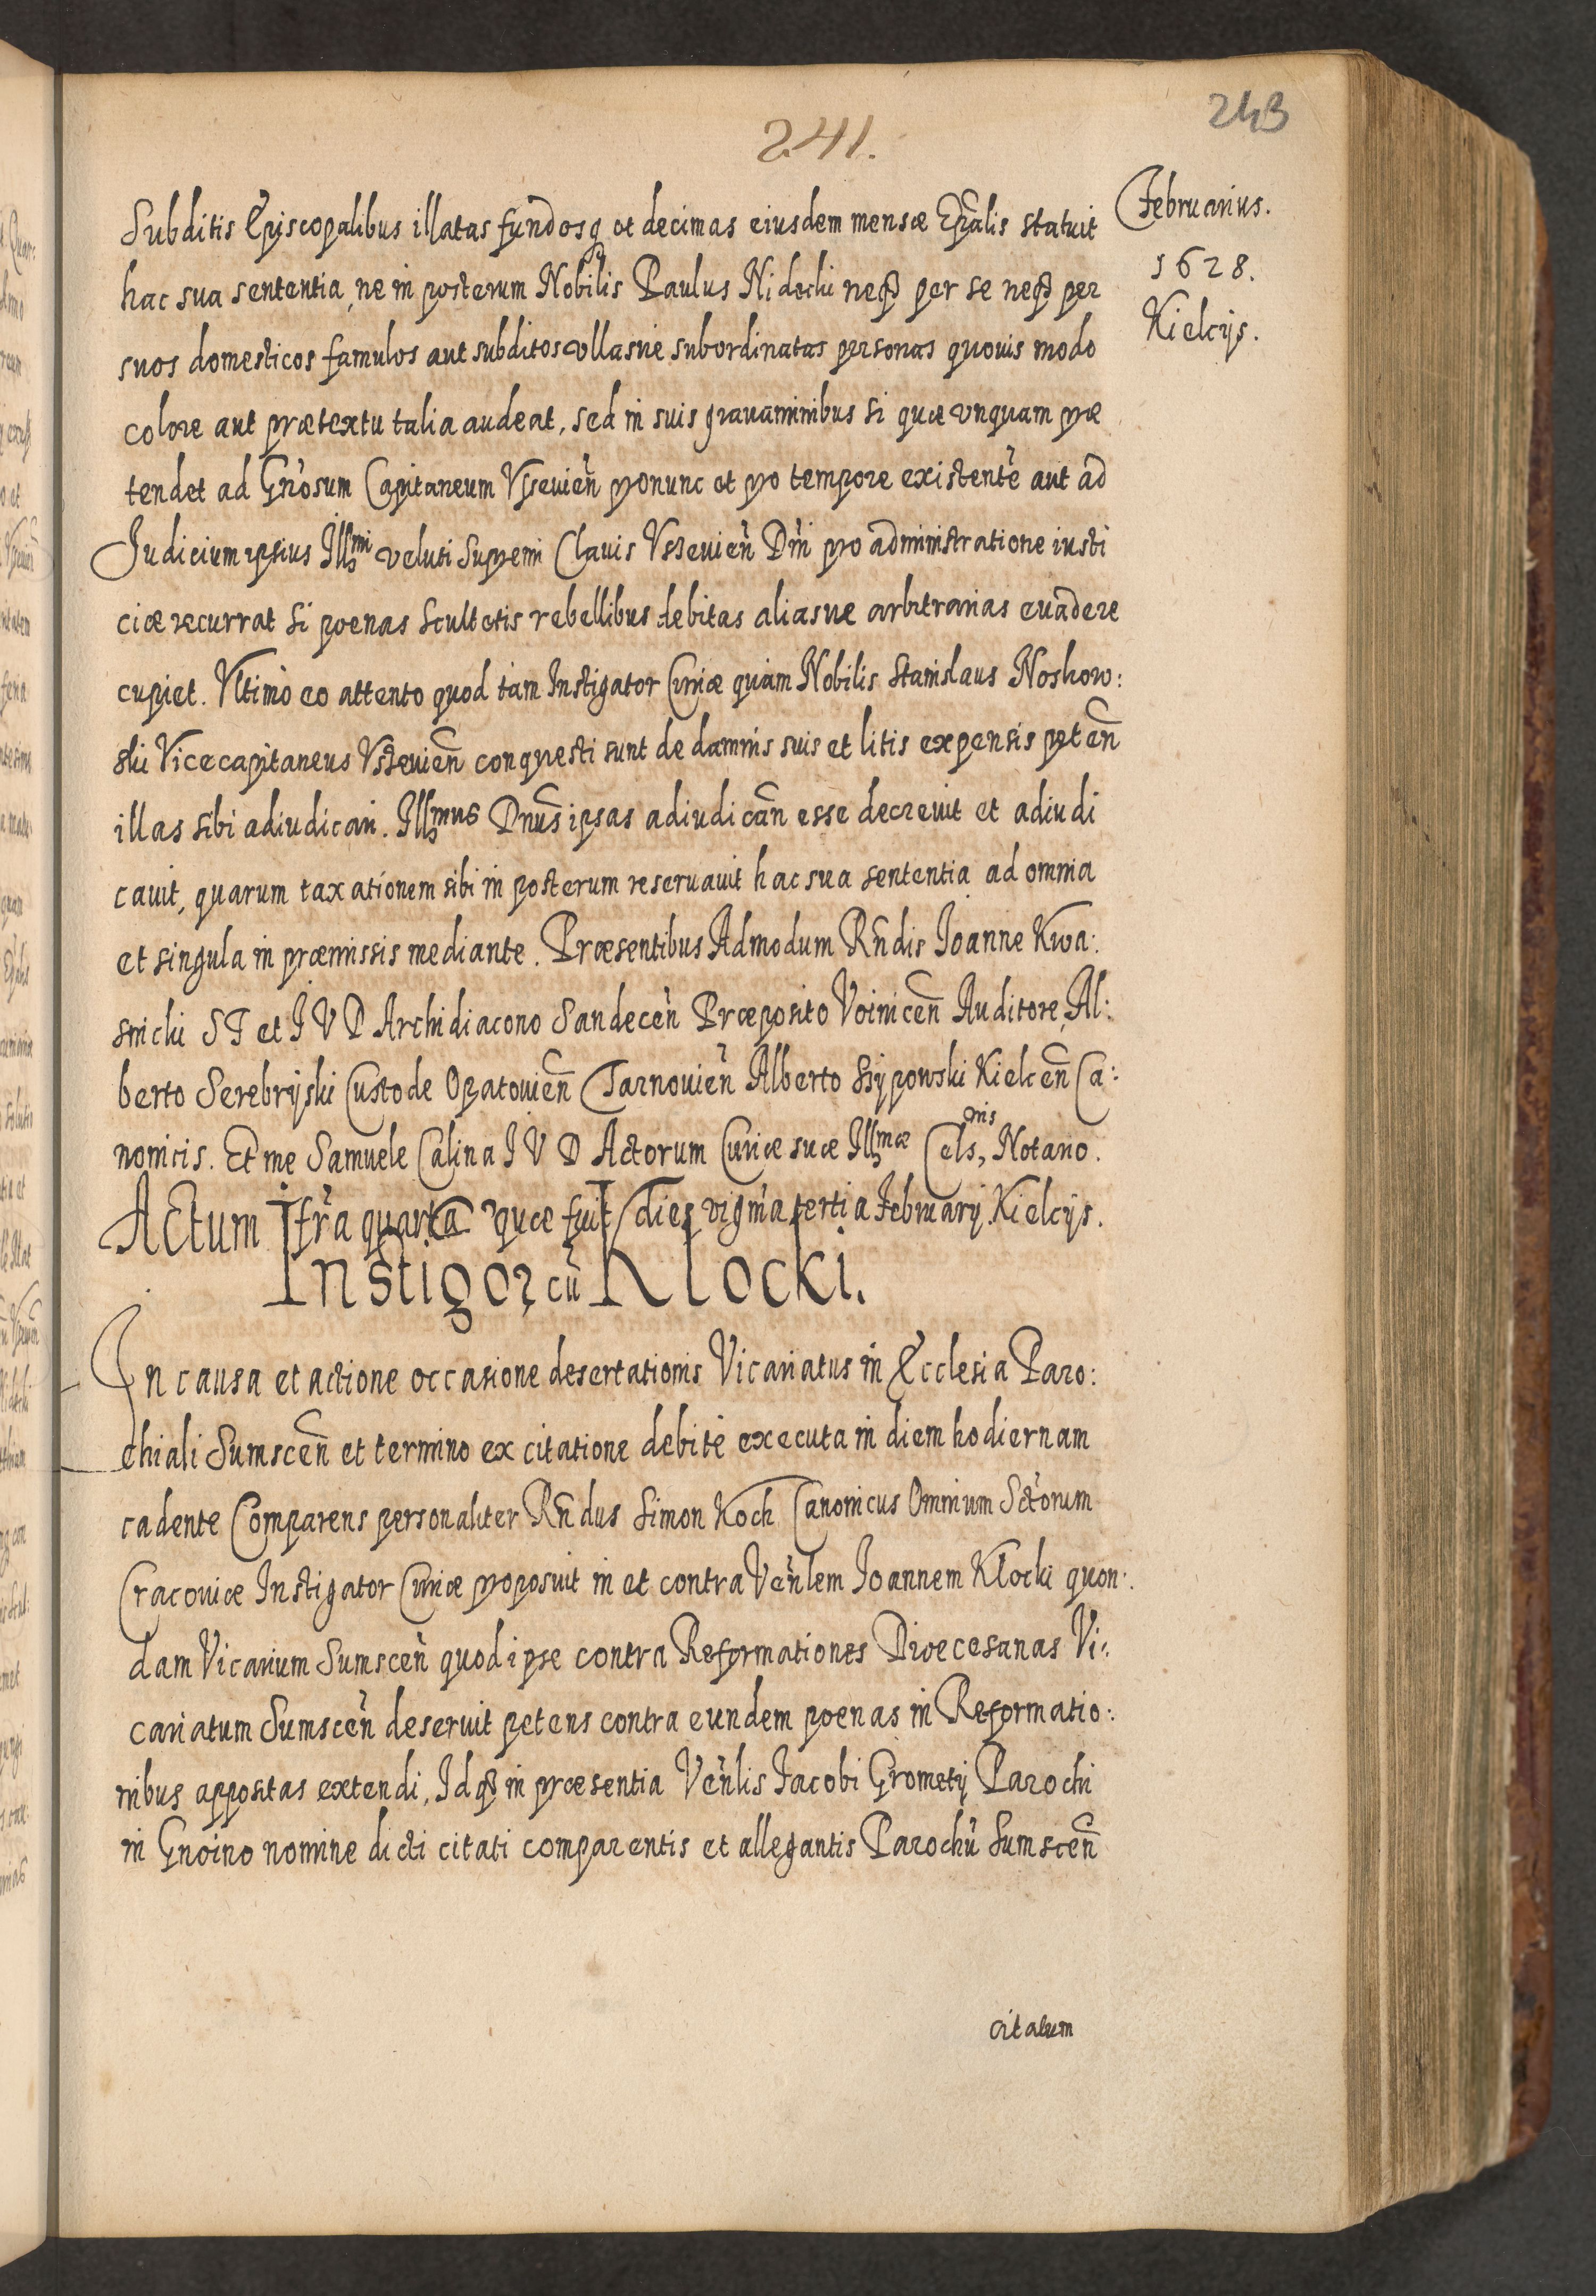 243
241.
Februarius.
1628.
Kielcijs.
Subditis Episcopalibus illatas fundosq et decimas eiusdem mensæ Epalis statuit
hac sua sententia, ne in posterum Nobilis Paulus Nidecki neqз per se neqз per
suos domesticos famulos aut subditos vllasue subordinatas personas quouis modo
colore aut prætextu talia audeat, sed in suis grauaminibus si quæ vnquam præ
tendet ad Gnosum Capitaneum Vssevien̄ pronunc et pro tempore existente aut ad
Judicium ipsius Illmi veluti Supremi Clauis Vssevien̄ Dni pro administratione iusti
ciæ recurrat si poenas scultetis rebellibus debitas aliasue arbitrarias euadere
cupiet. Vltimo eo attento quod tam Instigator Curiæ quam Nobilis Stanislaus Noskow:
ski Vicecapitaneus Vssevien̄ conquesti sunt de damnis suis et litis expensis peten̄
illas sibi adiudicari. Illmus Dnus ipsas adiudican̄ esse decreuit et adiudi
cauit, quarum taxationem sibi in posterum reseruauit hac sua sententia ad omnia
et singula in præmissis mediante. Præsentibus Admodum Rndis Joanne Kwa:
snicki S T et J V D Archidiacono Sandecen̄ Præposito Voinicen̄ Auditore, Al:
berto Serebrÿski Custode Opatouien̄ Tarnouien̄ Alberto Szÿpowski Kielcen̄ Ca:
nonicis. Et me Samuele Calina J V D Actorum Curiæ suæ Illmæ Celsnis, Notario.
Actum fra quarta quæ fuit dies vigma tertia Februarij. Kielcijs.
Instigor cū Klocki.
In causa et actione occasione desertationis Vicariatus in Ecclesia Paro:
chiali Sumscen̄ et termino ex citatione debite executa in diem hodiernam
cadente Comparens personaliter Rndus Simon Koch Canonicus Omnium Sctorum
Cracouiæ Instigator Curiæ proposuit in et contra Venlem Joannem Klocki quon:
dam Vicarium Sumscen̄ quod ipse contra Reformationes Dioecesanas Vi:
cariatum Sumscen̄ deseruit petens contra eundem poenas in Reformatio:
nibus appositas extendi, Idqз in præsentia Venlis Jacobi Grometij Parochi
in Gnoino nomine dicti citati comparentis et allegantis Parochū Sumscen̄
citatum